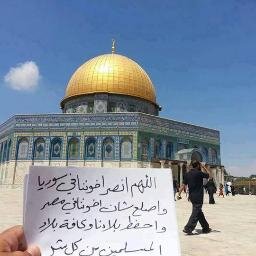 اللهم انصر اخوننا في سوريا
واصلح شان اخوننا في مصر
واحفظ بلادنا وكافة بلاد
المسلمين من كل شر